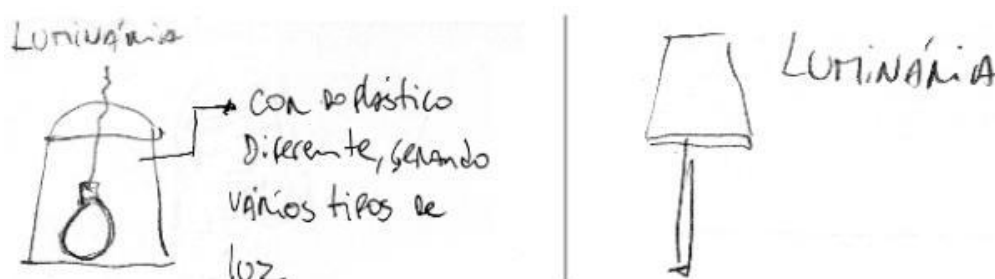 LUMINÁRIA
COR DO PLÁSTICO
DIFERENTE, GERANDO
VÁRIOS TIPOS DE
LUZ.
LUMINÁRIA